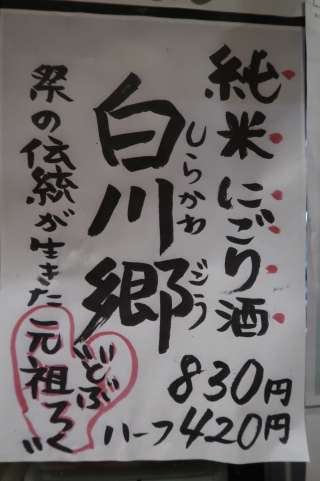 純米にごり酒
しらかわごう
白川郷
祭の伝統が生きた元祖ろく
どぶ
830円
ハーフ420円